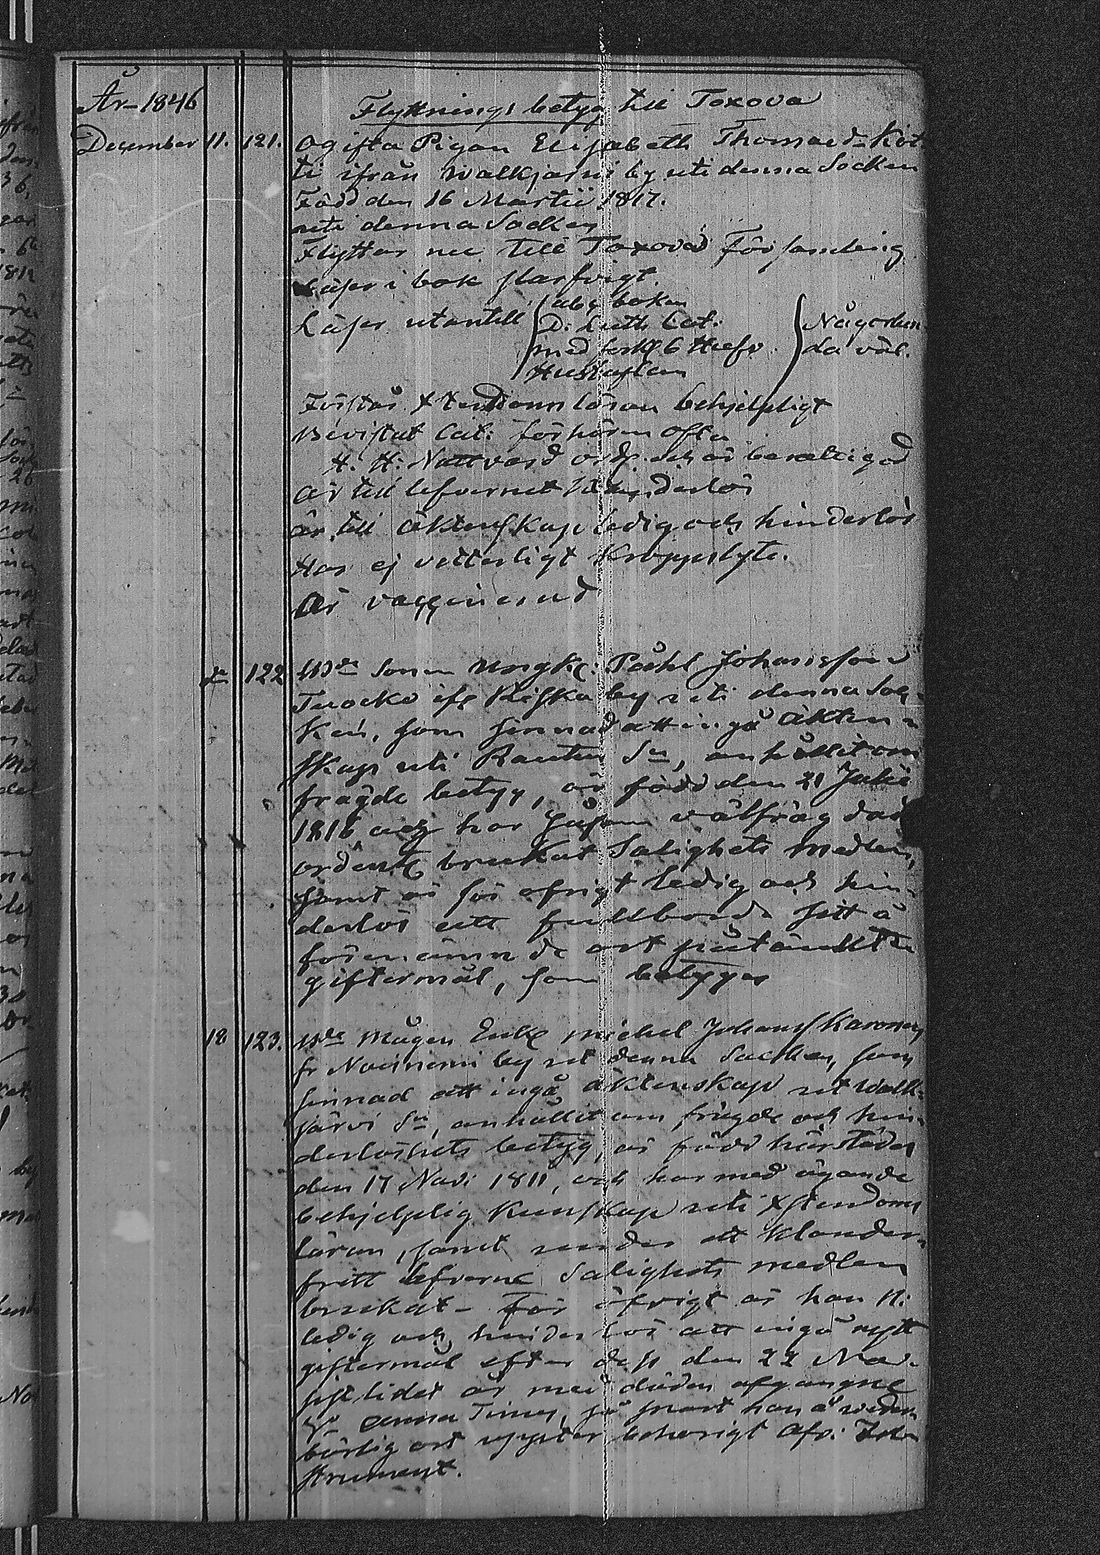 År 1846
Flyttnings betyg till Toxova
December 11. 121. Ogifta Pigan Elisabeth Thomasd. Kot
ti ifrån Walkjärvi by uti denna Socken
Född den 16 Martii 1817.
uti denna Socken
Flyttar nu till Toxova Församling
Läser i bok starfvigt
Läser utantill abc boken
D. Luth Cat.
med förkl 6 Hufv.
Hustaflan
Någorlun
da väl.
Förstår Xtendoms läran behjelpligt
Bevistat Cat: förhören ofta
H. H. Nattvard och är berättigad
är till lefvernet
är till äktenskap ledig och hinderlös
Har ej vetterligt kroppslyte.
är vaccinerad
122 Bde Sonen Ungk. Påhl Johansson
Tuocko ifr by uti denna Soc-
ken, som sinnad att ingå äkten-
skap uti Rautu Sn, anhållit om
frägde betyg, är född den 21 Julii
1816 och har
ordentl brukat Salighets medlen,
samt är för öfrigt ledig och hin-
derlös att fullborda sitt å
förenämnde ort påtänkte
giftermål, som betygas
18 123. Bde Mågen Enkl Michel Johansf Karonen
fr by uti denna Socken, som
sinnad att ingå äktenskap uti Walk-
järvi Sn, anhållit om frägde och hin-
derlöshets betyg, är född härstädes
den 17 Novi 1811, och har med ägande
behjelplig kunskap uti Xstendoms
läran, samt under ett klander-
fritt lefverne Salighets medlen
brukat - För öfrigt är han
ledig och hinderlös att ingå nytt
giftermål efter dess den 22 Nov.
sistlidet år med döden afgangne
Anna, så snart han å veder-
börlig ort uppter behörigt Afv. In-
strument.